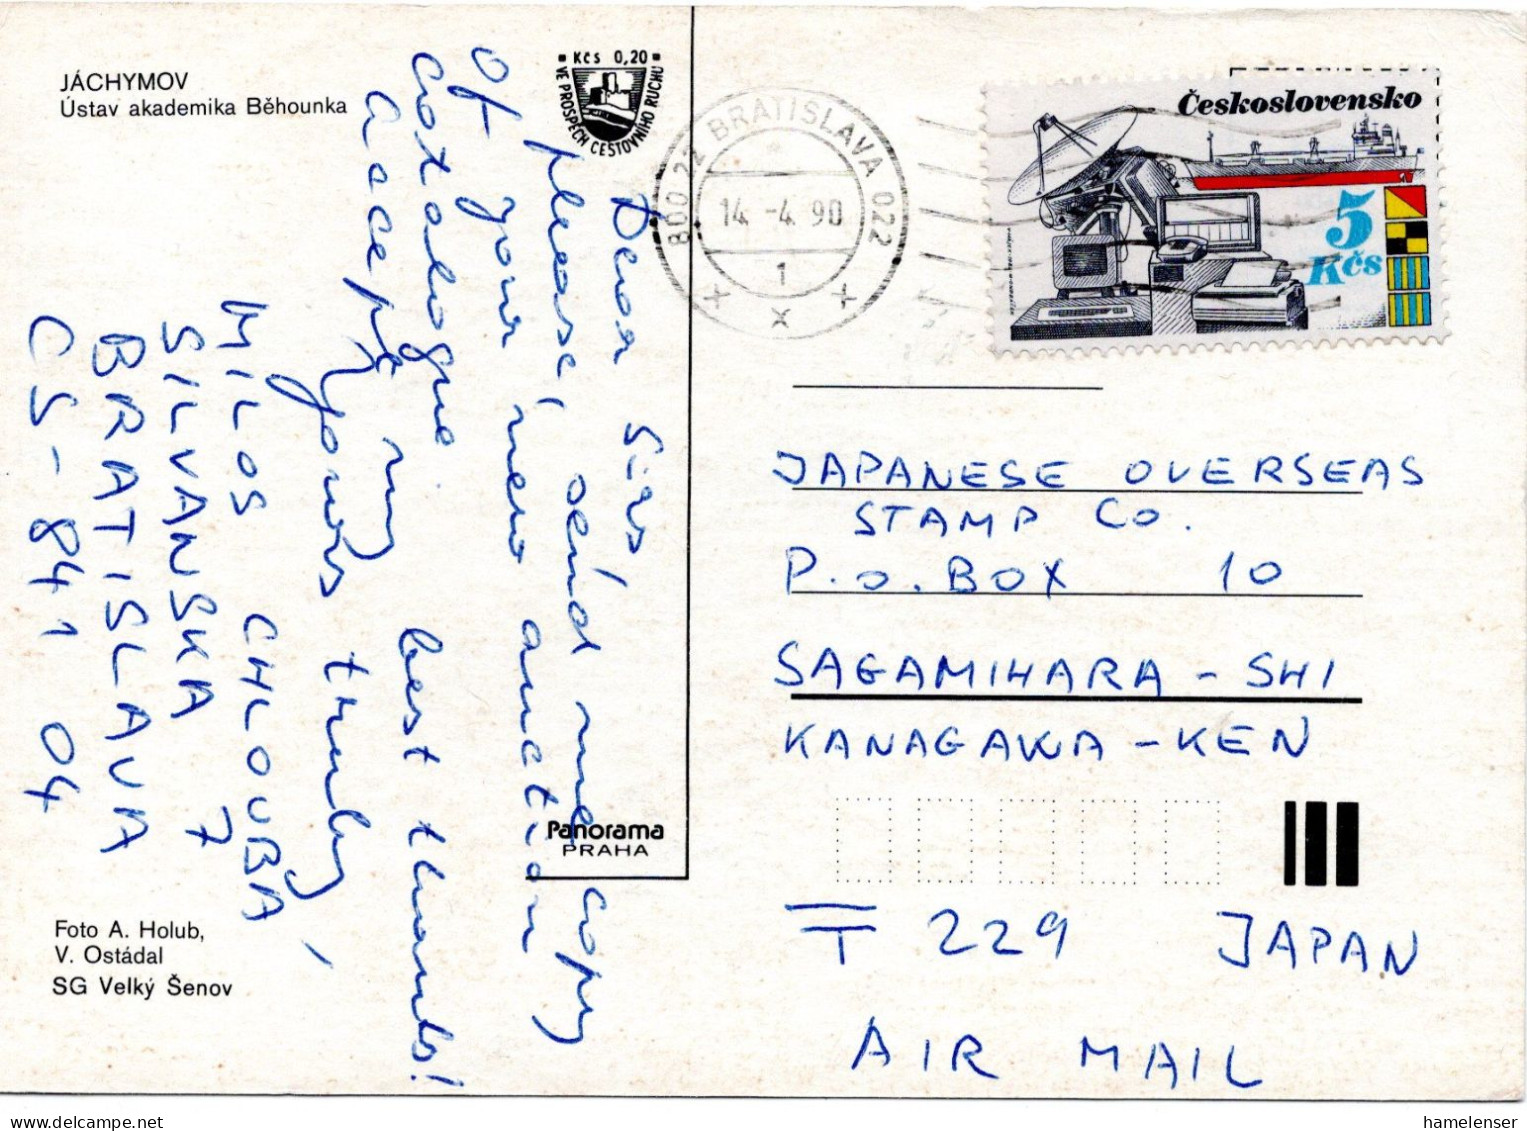 JÁCHYMOV
Ústav akademika Běhounka
Kčs 0,20
VE PROSPĚCH CESTOVNÍHO RUCHU
Dear Sirs
please, send me copy
of your new auction
catalogue.
Accept my best thanks!
Yours truly,
MILOS CHLOUBA
SILVANSKA 7
BRATISLAVA
CS-841 04
Panorama
PRAHA
Foto A. Holub,
V. Ostádal
SG Velký Šenov
800 22 BRATISLAVA 022
14.-4.90
1
Československo
5
Kčs
JAPANESE OVERSEAS
STAMP CO.
P.O. BOX 10
SAGAMIHARA - SHI
KANAGAWA - KEN
〒 229 JAPAN
AIR MAIL
hamelenser
delcampe.net